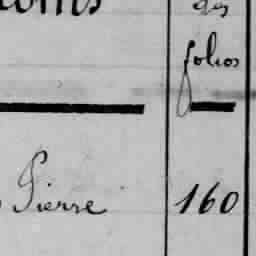 des
folios
Pierre 160